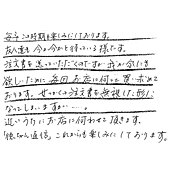 毎年この時期を楽しみにしております。
友人達も今か今かと待っている様です。
注文書を送っていただくのですが我が家にも
欲しいために毎回お店に伺って買い求めて
おります。せっかくの注文書を無視した形に
なってしまいますが…。
近いうちにお店に伺わせて頂きます。
通信。これからも楽しみにしております。